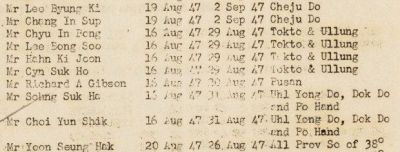 Mr Lee Byung Ki 19 Aug 47 2 Sep 47 Cheju Do
Mr Chung In Sup 19 Aug 47 2 Sep 47 Cheju Do
Mr Chyu In Bong 16 Aug 47 29 Aug 47 Tokto & Ullung
Mr Lee Bong Soo 16 Aug 47 29 Aug 47 Tokto & Ullung
Mr Hahn Ki Joon 16 Aug 47 29 Aug 47 Tokto & Ullung
Mr Gyn Suk Ho 16 Aug 47 29 Aug 47 Tokto & Ullung
Mr Richard A Gibson 16 Aug 47 30 Aug 47 Pusan
Mr Suk Ha Aug 47 31 Aug 47 Uhl Yong Do, Dok Do
and Po Hand
Mr Choi Yun Shik 16 Aug 47 31 Aug 47 Uhl Yong Do, Dok Do
and Po Hand
Mr Yoon Seung Hak 20 Aug 47 26 Aug 47 All Prov So of 38°